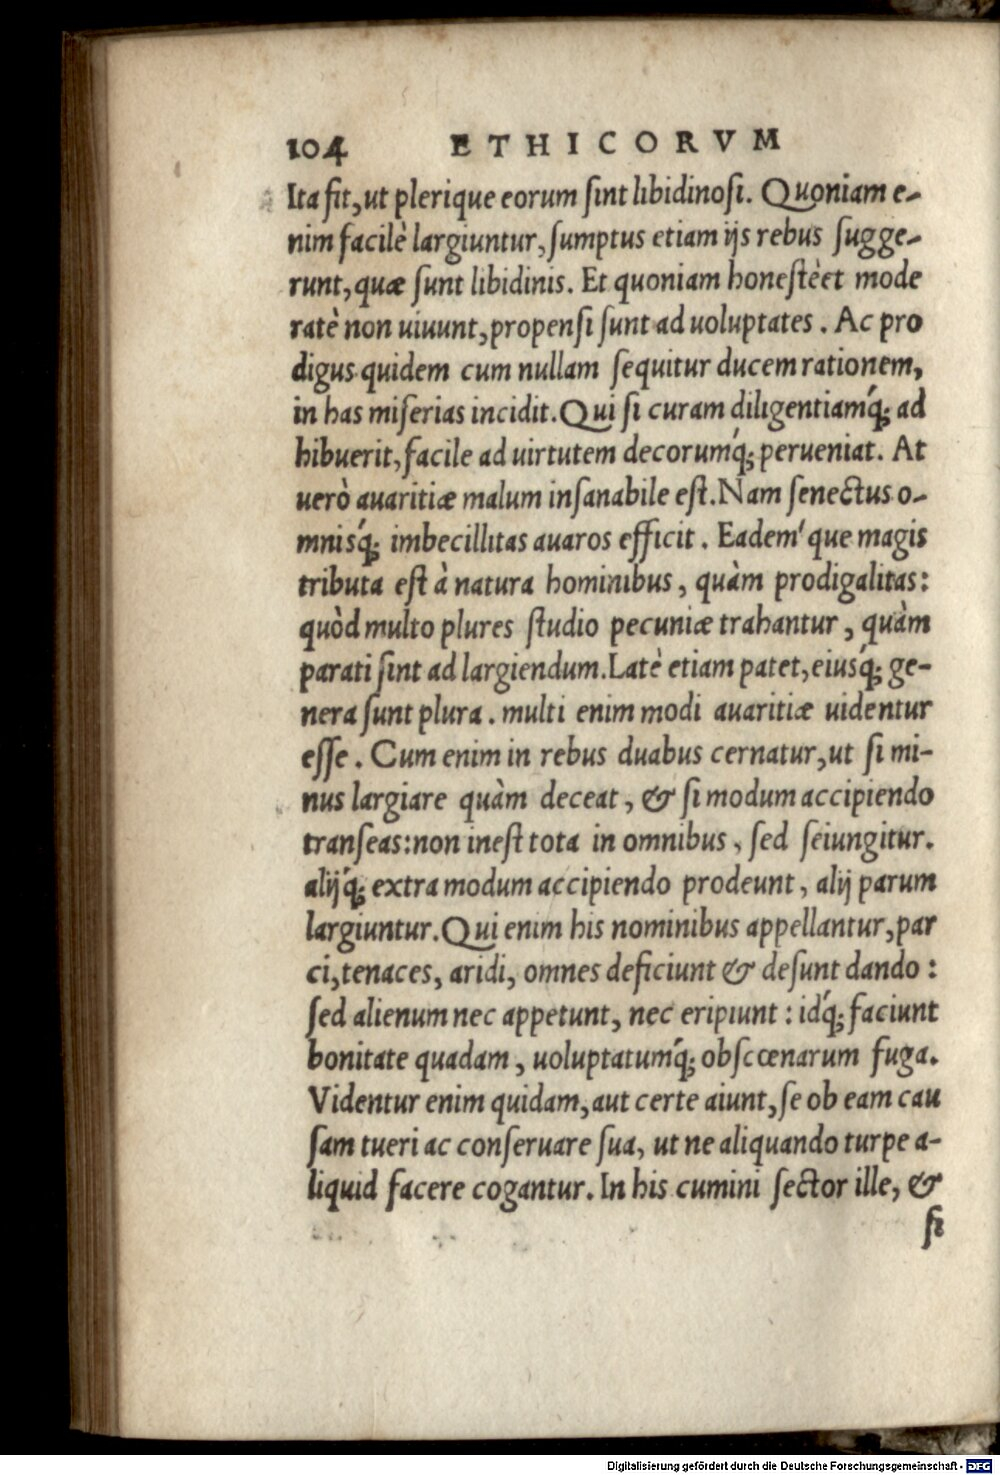 104 ETHICORVM
Ita fit, ut plerique eorum ſint libidinoſi. Quoniam e-
nim facilè largiuntur, ſumptus etiam ijs rebus ſugge-
runt, quæ ſunt libidinis. Et quoniam honeſtè et mode
ratè non uiuunt, propenſi ſunt ad uoluptates. Ac pro
digus quidem cum nullam ſequitur ducem rationem,
in has miſerias incidit. Qui ſi curam diligentiamq́; ad
hibuerit, facile ad uirtutem decorumq́; perueniat. At
uerò auaritiæ malum inſanabile eſt. Nam ſenectus o-
mnisq́; imbecillitas auaros efficit. Eadem'que magis
tributa eſt à natura hominibus, quàm prodigalitas:
quòd multo plures ſtudio pecuniæ trahantur, quàm
parati ſint ad largiendum. Latè etiam patet, eiusq́; ge-
nera ſunt plura. multi enim modi auaritiæ uidentur
eſſe. Cum enim in rebus duabus cernatur, ut ſi mi-
nus largiare quàm deceat, & ſi modum accipiendo
tranſeas: non ineſt tota in omnibus, ſed ſeiungitur.
alijq́; extra modum accipiendo prodeunt, alij parum
largiuntur. Qui enim his nominibus appellantur, par
ci, tenaces, aridi, omnes deficiunt & deſunt dando:
ſed alienum nec appetunt, nec eripiunt: idq́; faciunt
bonitate quadam, uoluptatumq́; obſcœnarum fuga.
Videntur enim quidam, aut certe aiunt, ſe ob eam cau
ſam tueri ac conſeruare ſua, ut ne aliquando turpe a-
liquid facere cogantur. In his cumini ſector ille, &
ſi
Digitalisierung gefördert durch die Deutsche Forschungsgemeinschaft - DFG